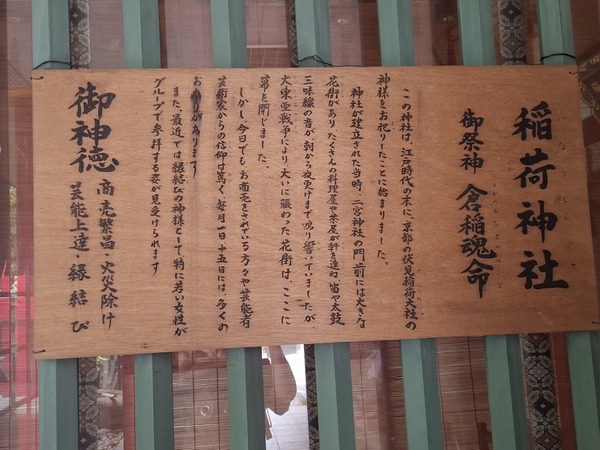 稲荷神社
御祭神 倉稲魂命
この神社は、江戸時代の末に、京都の伏見稲荷大社の
神様をお祀りしたことに始まりました。
神社が建立された当時、二宮神社の門前には大きな
花街があり、たくさんの料理屋や茶屋が軒を連ね、笛や太鼓
三味線の音が、朝から夜更けまで鳴り響いていましたが、
大東亜戦争により、大いに賑わった花街は、ここに
幕を閉じました。
しかし、今日でも、お商売をされている方々や芸能者
芸術家からの信仰は篤く、毎月一日、十五日には、多くの
お参りがあります
また、最近では縁結びの神様として特に若い女性が
グループで参拝する姿が見受けられます
御神徳
商売繁昌・火災除け
芸能上達・縁結び